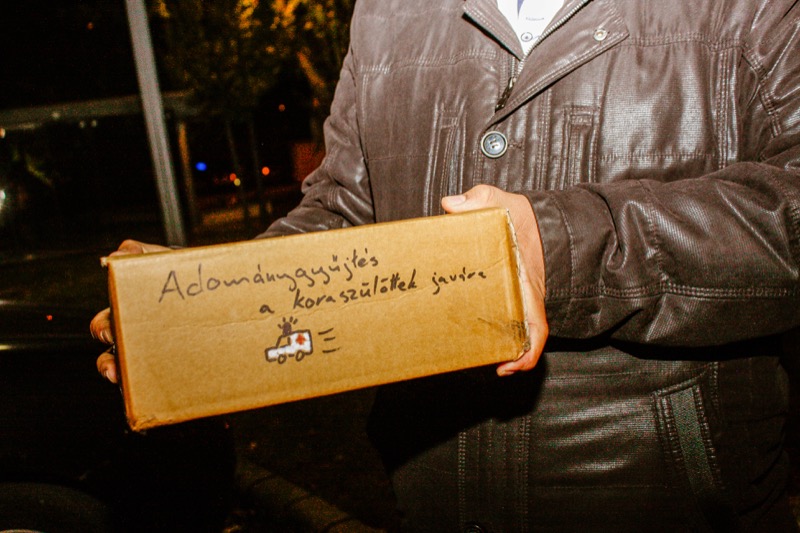 Adománygyűjtés
a koraszülöttek javára